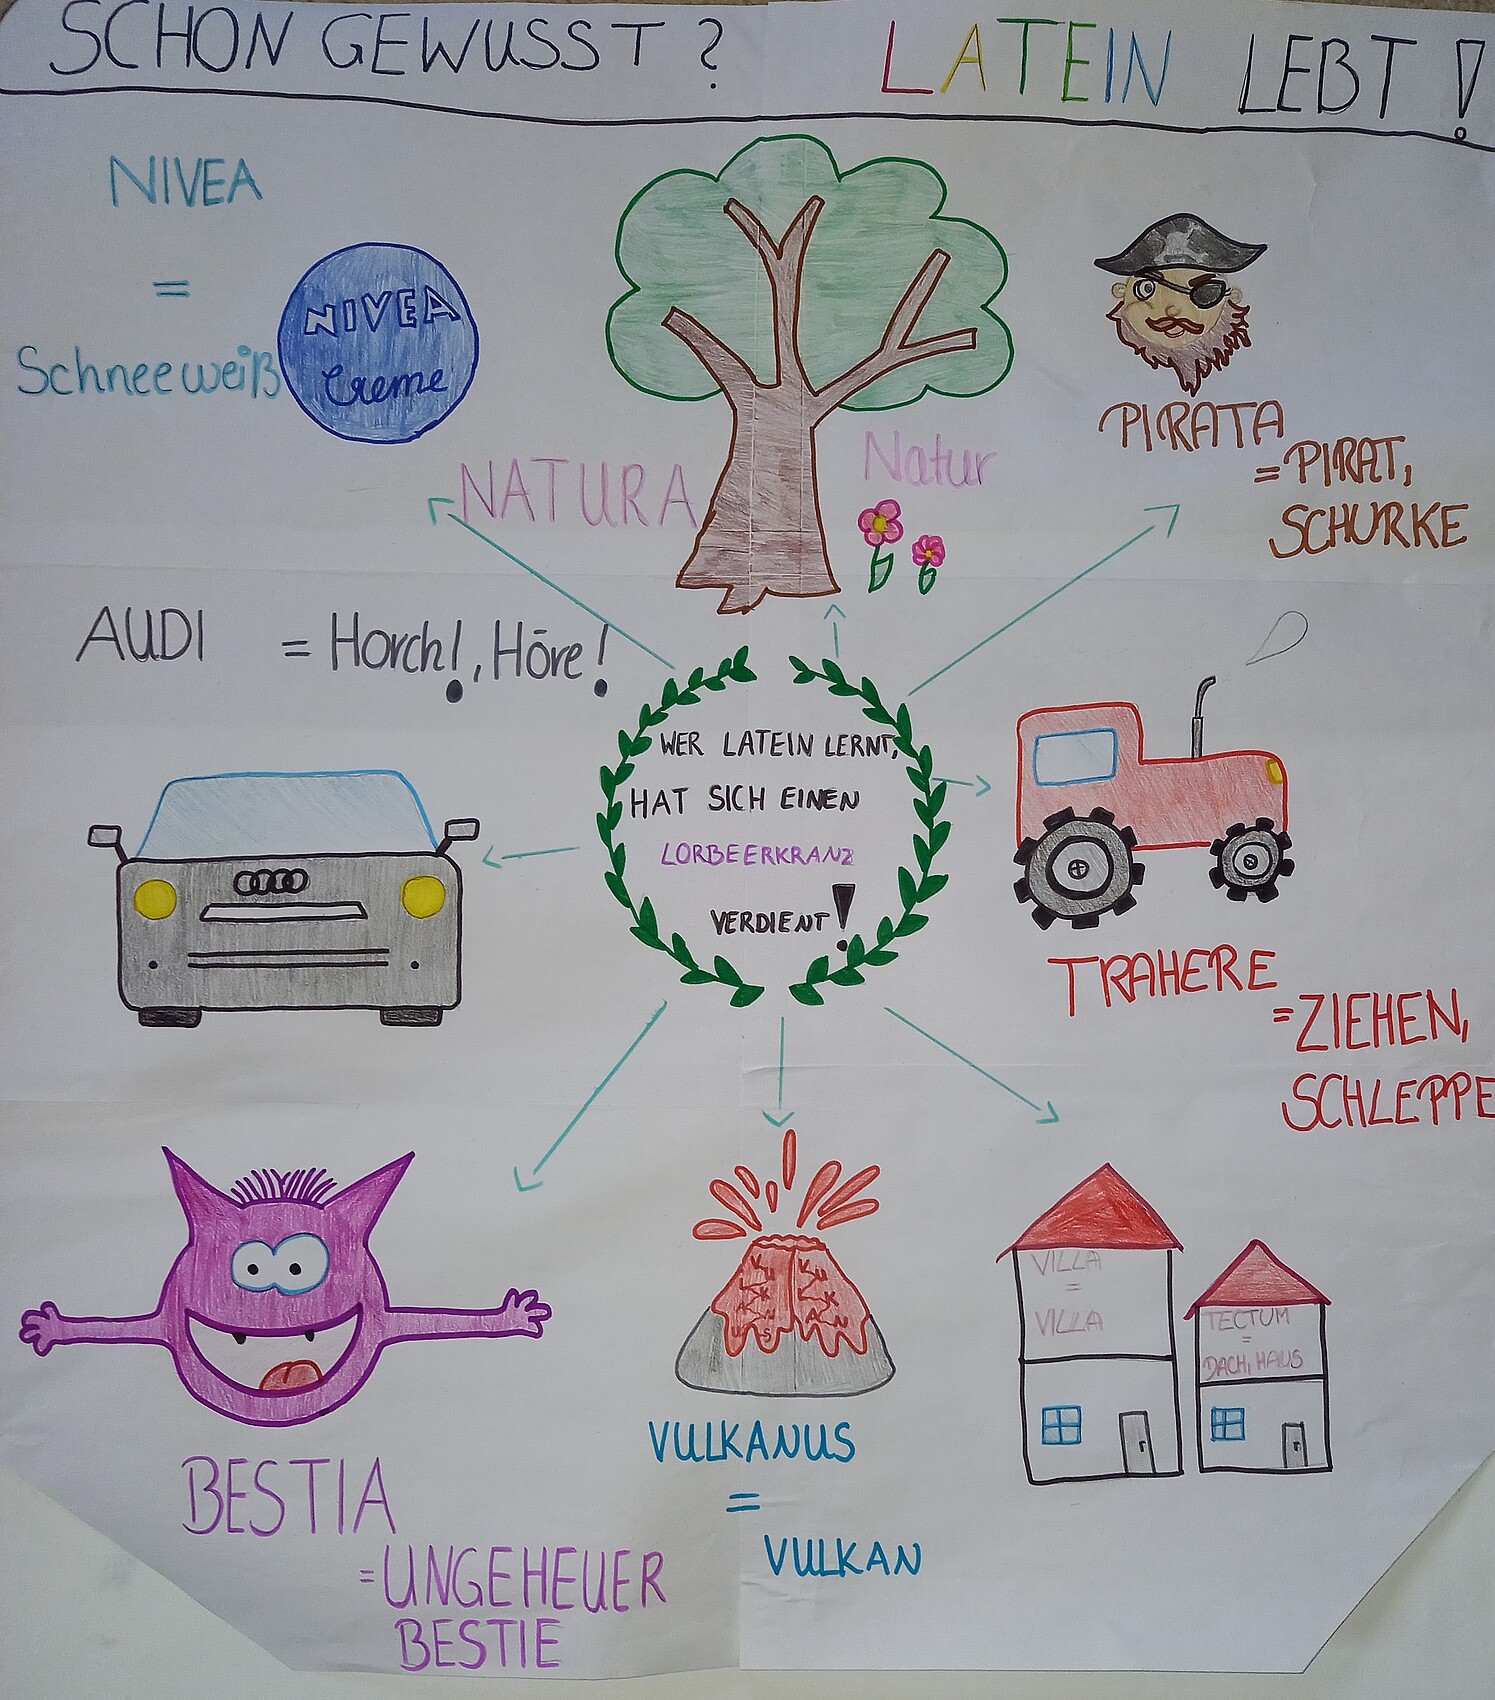 SCHON GEWUSST? LATEIN LEBT!
NIVEA
=
Schneeweiß
NIVEA
Creme
NATURA
Natur
PIRATA
=PIRAT,
SCHURKE
AUDI = Horch!, Höre!
WER LATEIN LERNT,
HAT SICH EINEN
LORBEERKRANZ
VERDIENT!
TRAHERE
=ZIEHEN,
SCHLEPPE
BESTIA
=UNGEHEUER
BESTIE
VULKANUS
VULKAN
VULKANUS
=
VULKAN
VILLA
=
VILLA
TECTUM
=
DACH, HAUS